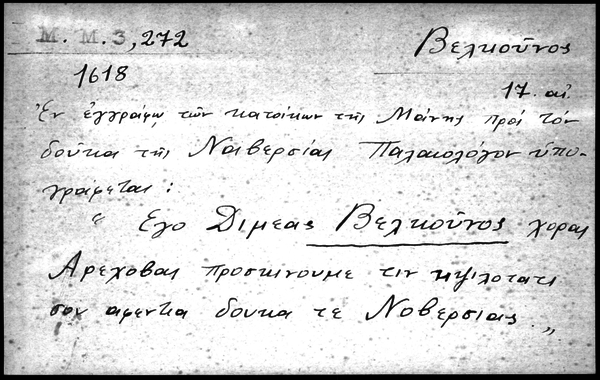 Μ. Μ. 3, 272
Βελκοῦνος
1618
17. αἰ.
Ἐν ἐγγράφῳ τῶν κατοίκων τῆς Μάνης πρὸς τὸν
δοῦκα τῆς Ναβερσίας Παλαιολόγον ὑπο-
γράφεται:
“ Εγο Διμεας Βελκοῦνος χορας
Αρεχοβας προσκινουμε τιν ηψιλοτατι
σου αφεντα δουκα τε Νοβερσιας. „